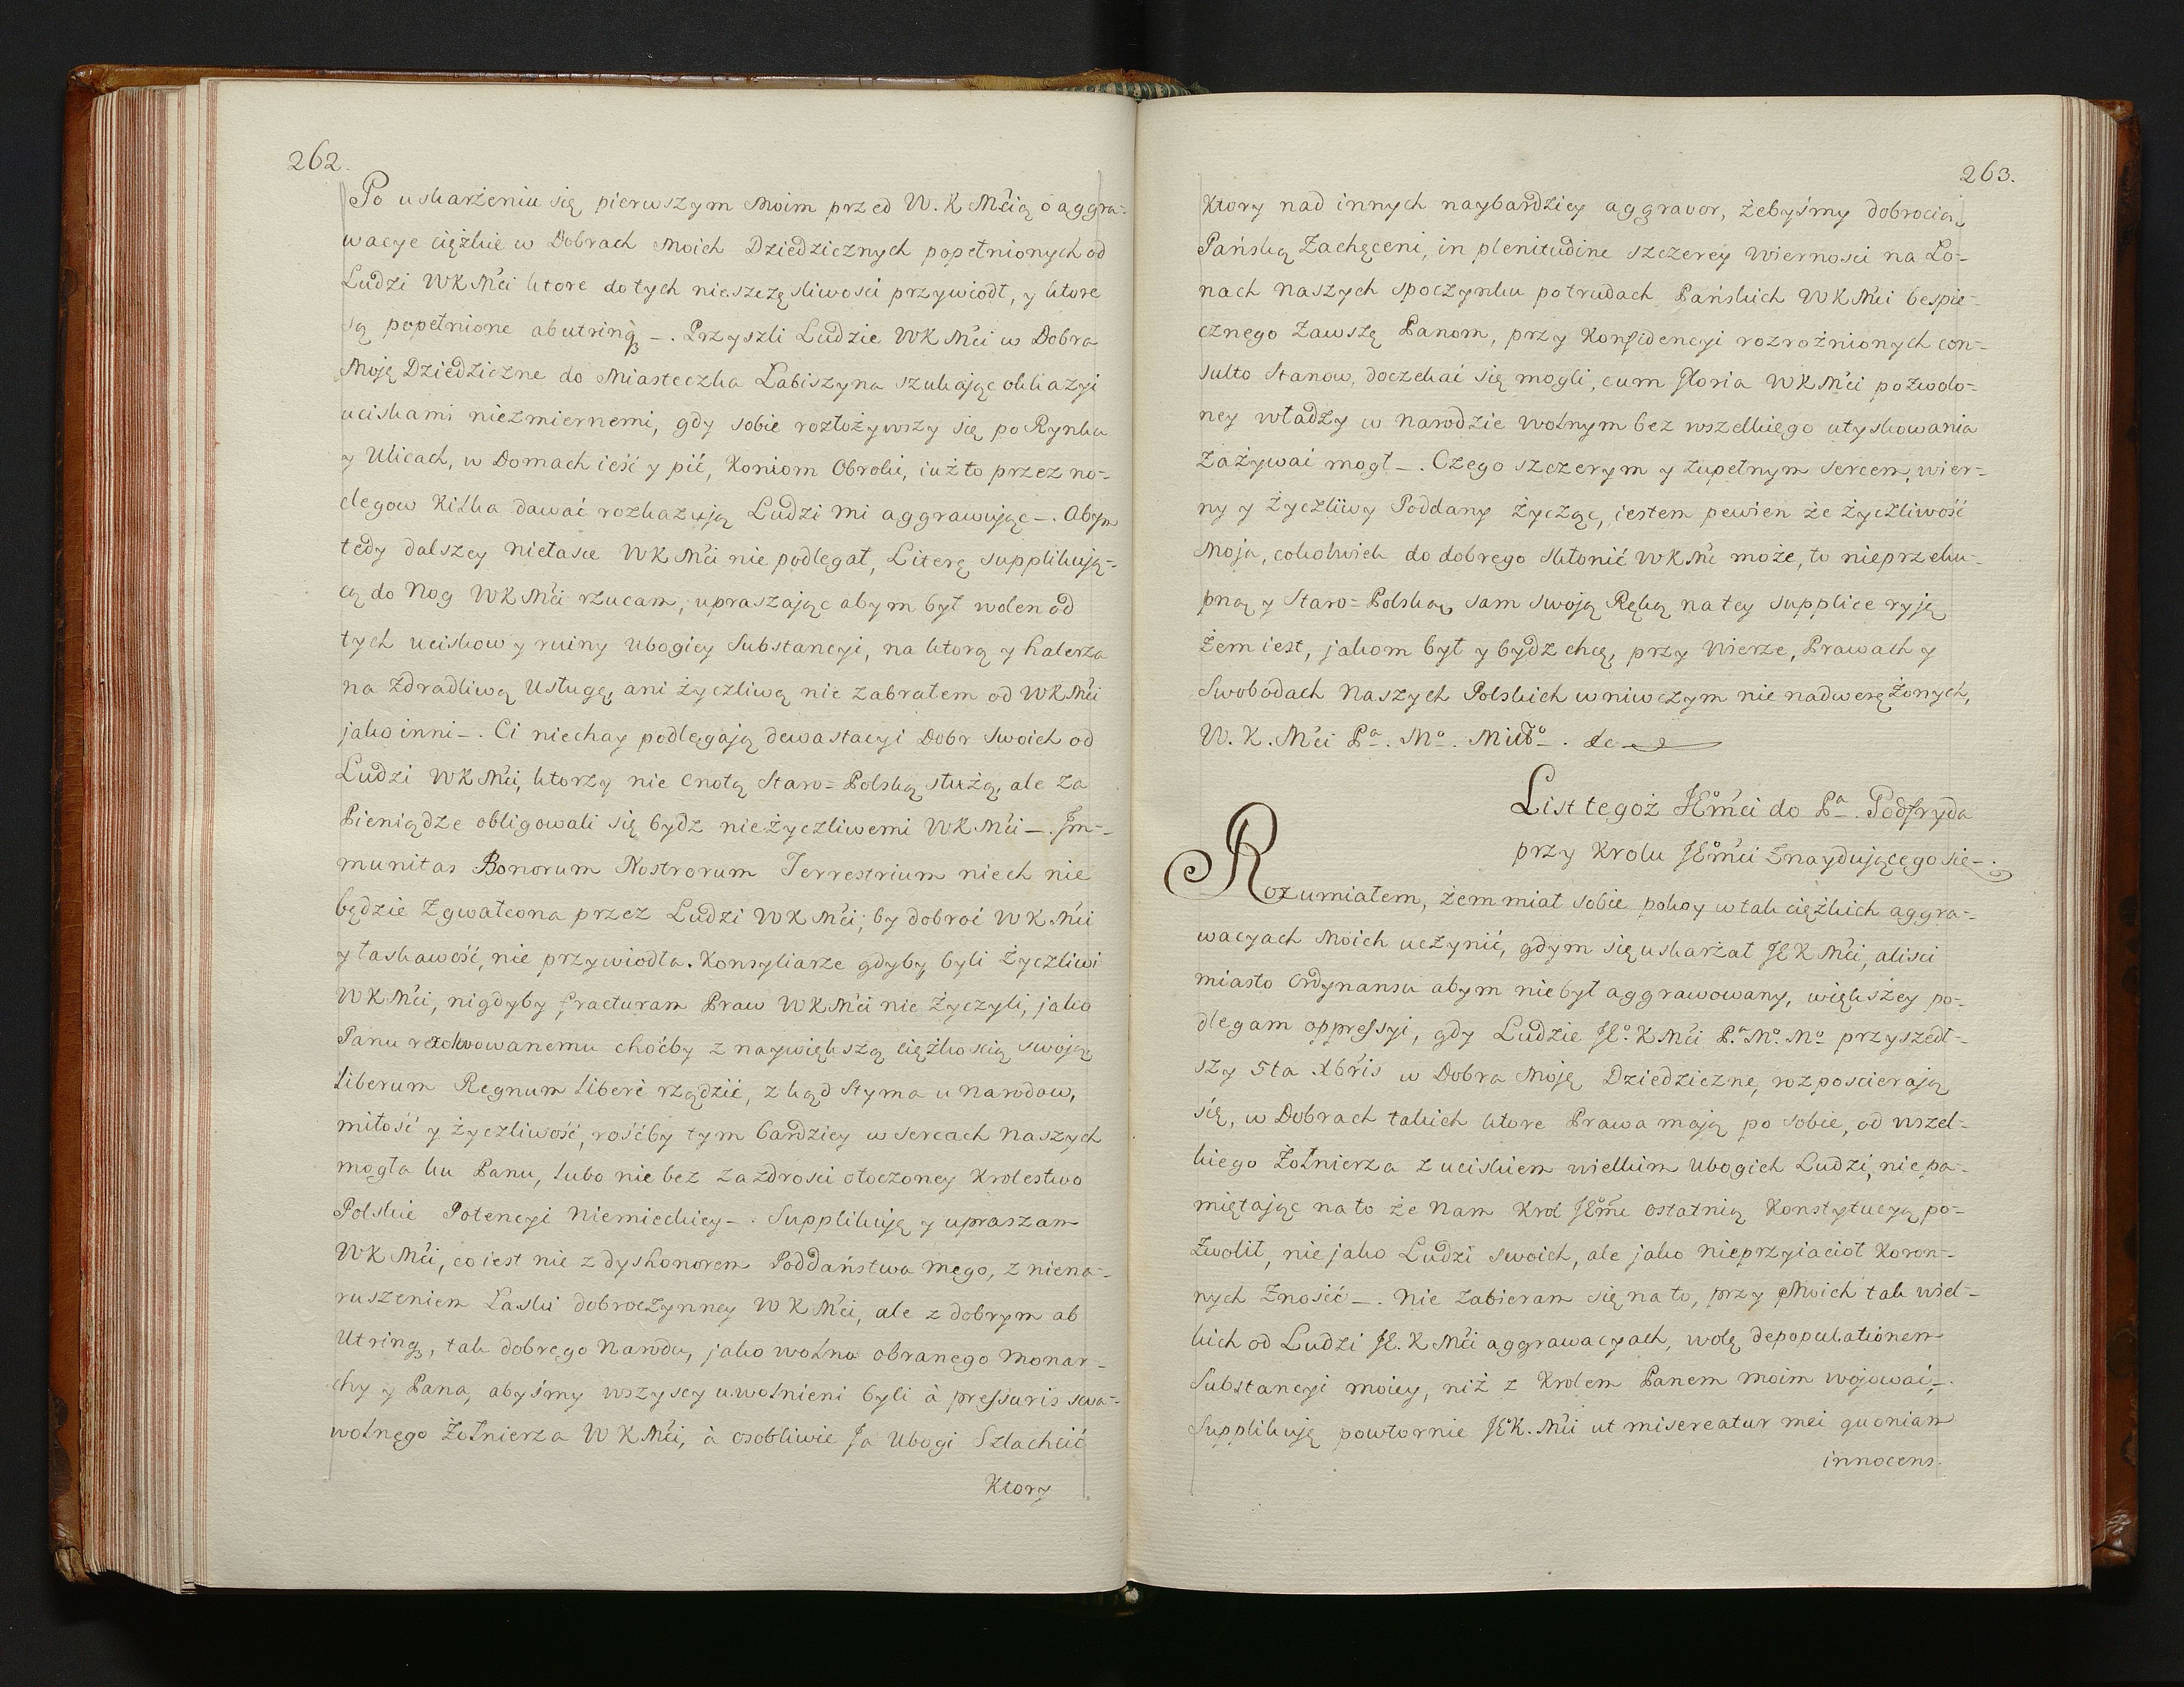 262.
Po uskarżeniu się pierwszym Moim przed W. K Mćią o aggra-
wacye ciężkie w Dobrach Moich Dziedzicznych popełnionych od
Ludzi WK Mći ktore do tych nieszczęśliwości przywiodł, y ktore
są popełnione ab utrinq₃ –. Przyszli Ludzie WK Mći w Dobra
Moję Dziedziczne do Miasteczka Łabiszyna szukając okkazyi
uciskami niezmiernemi, gdy sobie rozłożywszy się po Rynku
y Ulicach, w Domach ieść y pić, Koniom Obroki, iuż to przez no-
clegow Kilka dawać rozkazują Ludzi mi aggrawując –. Abym
tedy dalszey niełasce WK Mći nie podlegał, Literę supplikują-
cą do Nog WK Mći rzucam, upraszając abym był wolen od
tych uciskow y ruiny Ubogiey Substancyi, na ktorą y halerza
na zdradliwą Usługę, ani życzliwą nie zabrałem od WK Mći
jako inni –. Ci niechay podlegają dewastacyi Dobr Swoich od
Ludzi WK Mći, ktorzy nie Cnotą Staro=Polską służą, ale za
Pieniądze obligowali się bydz nieżyczliwemi WK Mći –. Jm-
munitas Bonorum Nostrorum Terrestrium niech nie
będzie Zgwałcona przez Ludzi WK Mći; by dobroć WK Mći
y łaskawość, nie przywiodła. Konsyliarze gdyby byli Życzliwi
WK Mći, nigdyby fracturam Praw WK Mći nie życzyli, jako
Panu rexolwowanemu choćby z naywiększą ciężkością swoją
liberum Regnum liberè rządzić, z kąd Styma u Narodow,
miłość y życzliwość, rość by tym bardziey w sercach Naszych
mogła ku Panu, lubo nie bez zazdrości otoczoney Krolestwo
Polskie Potencyi Niemieckiey –. Supplikuję y upraszam
WK Mći, co iest nie z dyshonorem Poddaństwa mego, z niena-
ruszeniem Łaski dobroczynney WK Mći, ale z dobrym ab
Utrinq₃, tak dobrego Narodu, jako wolno obranego Monar-
chy y Pana, abyśmy wszyscy uwolnieni byli à pressuris swa-
wolnego Żołnierza WK Mći, à osobliwie Ja Ubogi Szlachcic
Ktory
263.
Ktory nad innych naybardziey aggravor, żebyśmy dobrocią
Pańską Zachęceni, in plenitudine szczerey wierności na Ło-
nach Naszych spoczynku po trudach Pańskich WK Mći bespie-
cznego Zawszę Panom, przy Konfidencyi rozrożnionych con-
sulto Stanow, doczekać się mogli, cum Gloria WK Mći pozwolo-
ney władzy w Narodzie wolnym bez wszelkiego utyskowania
zażywać mogł –. Czego szczerym y zupełnym sercem, wier-
ny y życzliwy Poddany życząc, iestem pewien że życzliwość
Moja, cokolwiek do dobrego skłonić WK Mć może, to nieprzeku-
pną y Staro=Polską, sam swoją Ręką na tey supplice ryję
żem iest, jakom był y bydz chcę, przy Wierze, Prawach y
Swobodach Naszych Polskich w niwczym nie nadwerężonych,
W. K. Mći Pª. Mº. Miłº. &c –
List tegoż JEºmći do Pª. Podfryda
przy Krolu JEºmći Znaydującego się –.
Rozumiałem, żem miał sobie pokoy w tak ciężkich aggra-
wacyach Moich uczynić, gdym się uskarżał JE K Mći, aliści
miasto Ordynansu abym nie był aggrawowany, większey po-
dlegam oppressyi, gdy Ludzie JEº. K Mći Pª. Mº. Mº przyszedł-
szy 5ta Xbris w Dobra Moję Dziedziczne, rozpościerają
się, w Dobrach takich ktore Prawa mają po sobie, od wszel-
kiego Żołnierza z uciskiem wielkim Ubogich Ludzi, nie pa-
miętając na to że Nam Krol JEºmć ostatnią Konstytucyą po-
zwolił, nie jako Ludzi swoich, ale jako Nieprzyiacioł Koron-
nych Znosić –. Nie zabieram się na to, przy Moich tak wiel-
kich od Ludzi JE. K Mći aggrawacyach, wolę depopulationem
Substancyi moiey, niż z Krolem Panem moim wojować –.
Supplikuję powtornie JEK. Mći ut misereatur mei quoniam
innocens.